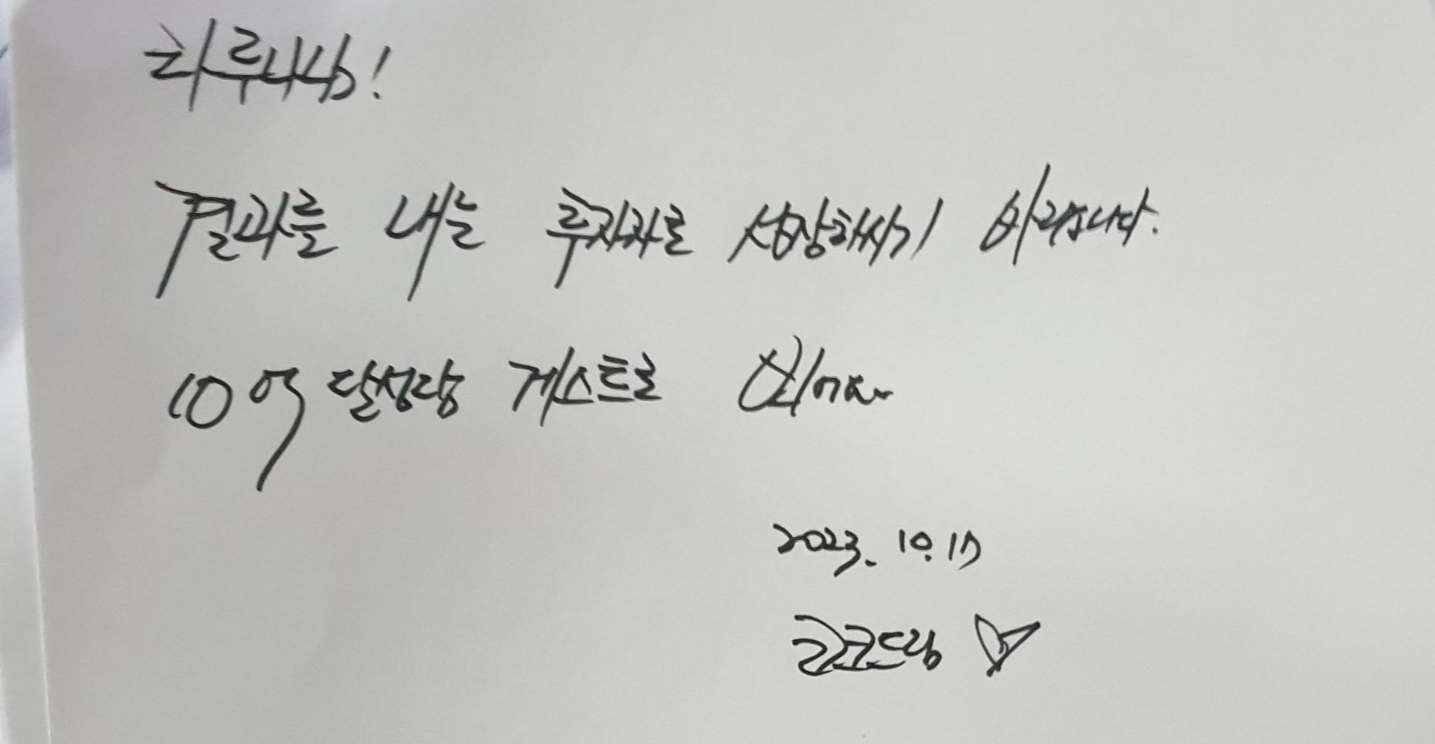 하루님!
결과를 내는 투자자로 성장하시기 바랍니다.
10억 달성랑 게스트로
2023. 10. 17
코크드림 ♡